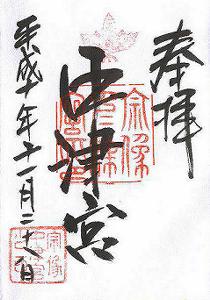 奉拝
中津宮
平成十年十一月二十八日
宗像